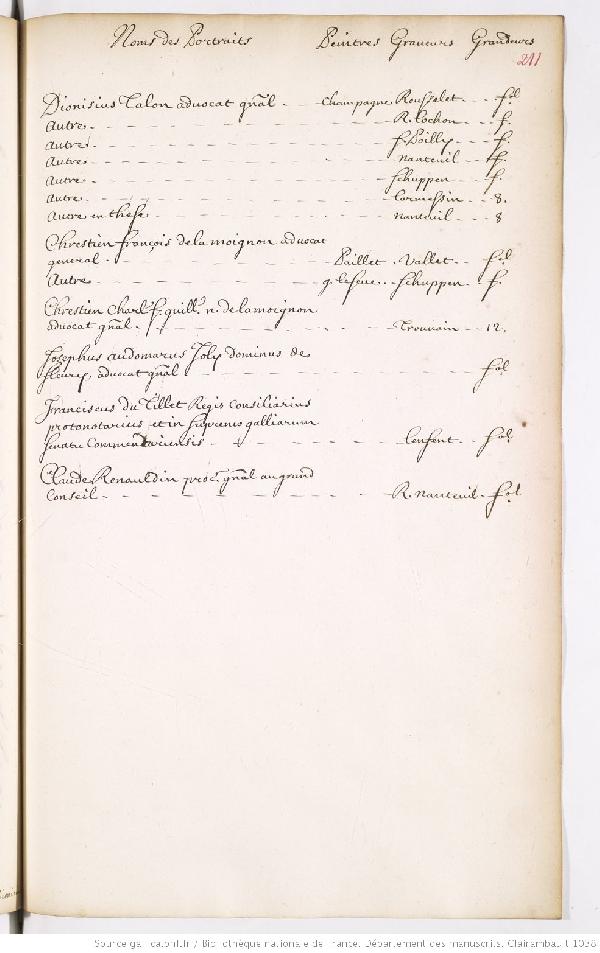 Noms des Portraits Peintres Graveurs Grandeurs
241
Dionisius Talon advocat gñal - - Champagne Rousselet - - - fol
Autre - - - R. Lochon - - - f.
Autre - - - f. Poilly - - - f.
Autre - - - Nanteuil - - - f.
Autre - - - Schuppen - - - f.
Autre - - - Cormessin - - 8.
Autre en these - - - Nanteuil - - - 8
Chrestien françois de la moignon advocat
general - - - Paillet . Vallet - - fol
Autre - - - g. lefeve . . Schuppen - - f.
Chrestien Charl. f. guill. n. de lamoignon
advocat gñal - - - Trouvain - - 12.
Josephus audomarus Joly dominus de
fleury, advocat gñal - - - fol
Franciscus du Tillet Regis Consiliarius
protonotarius et in supremo galliarum
senatu Commentariensis - - - Lenfent - - fol
Claude Renauldin proc. gñal au grand
Conseil - - - R. Nanteuil - fol
Source gallica.bnf.fr / Bibliothèque nationale de France. Département des manuscrits. Clairambault 1038